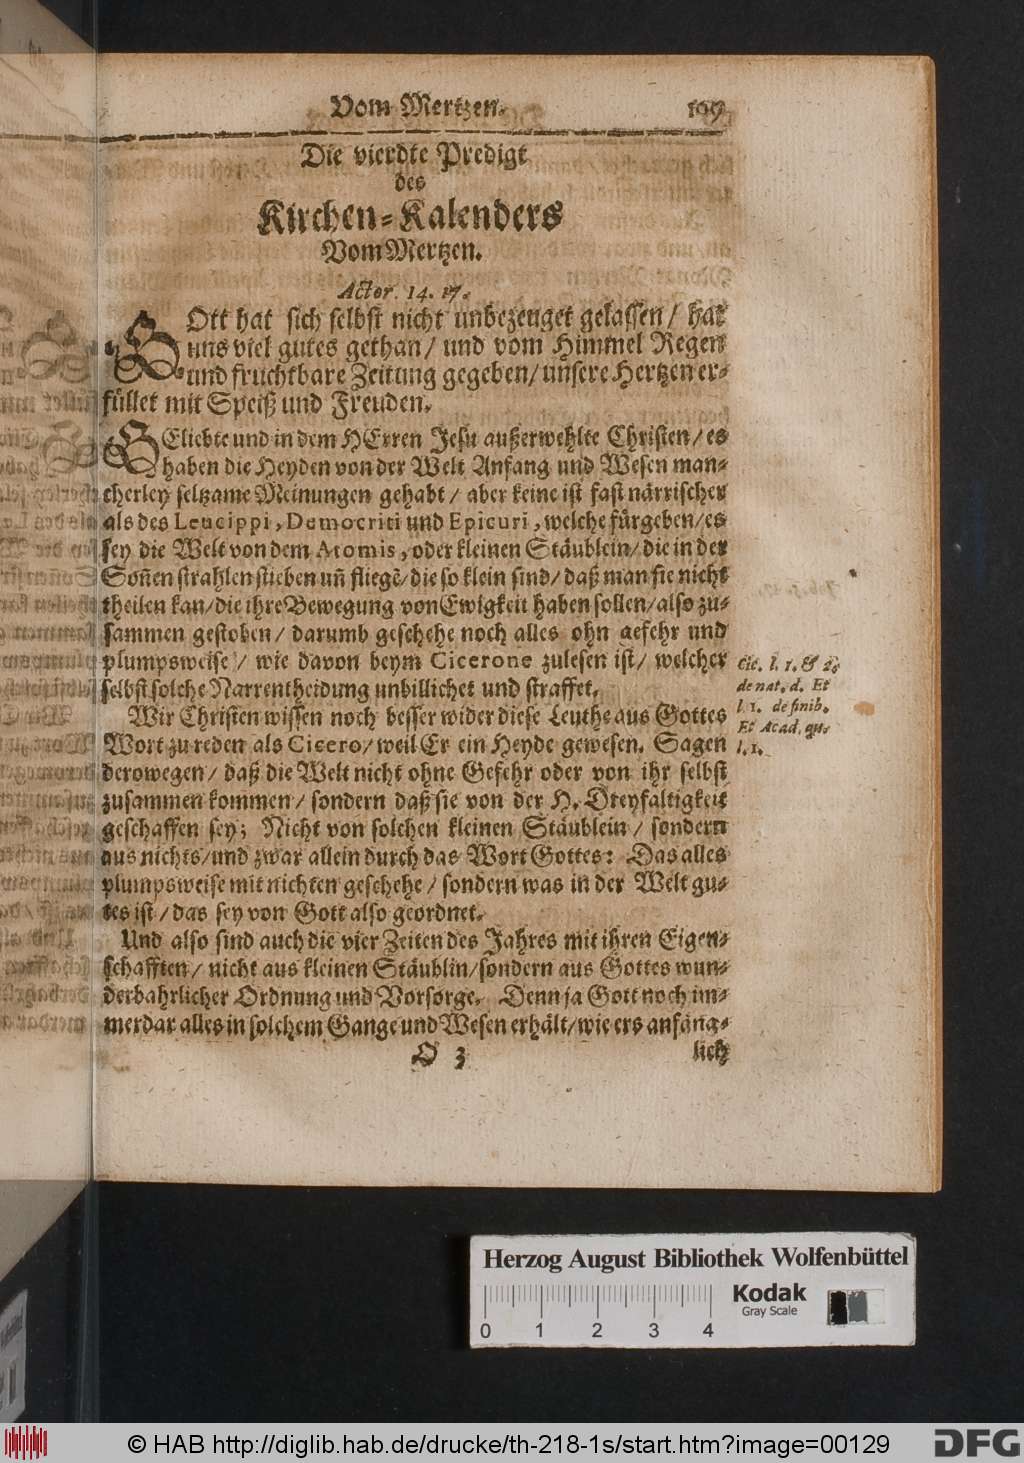 Vom Mertzen. 109
Die vierdte Predigt
des
Kirchen-Kalenders
Vom Mertzen.
Actor. 14. 17.
GOtt hat sich selbst nicht unbezeuget gelassen/ hat
uns viel gutes gethan/ und vom Himmel Regen
und fruchtbare Zeitung gegeben/ unsere Hertzen er-
füllet mit Speiß und Freuden.
GEliebte und in dem HErren Jesu außerwehlte Christen/ es
haben die Heyden von der Welt Anfang und Wesen man-
cherley seltzame Meinungen gehabt/ aber keine ist fast närrischer
als des Leucippi, Democriti und Epicuri, welche fürgeben/ es
sey die Welt von dem Atomis, oder kleinen Stäublein/ die in der
Soñen strahlen stieben uñ fliegẽ/ die so klein sind/ daß man sie nicht
theilen kan/ die ihre Bewegung von Ewigkeit haben sollen/ also zu-
sammen gestoben/ darumb geschehe noch alles ohn gefehr und
plumpsweise/ wie davon beym Cicerone zulesen ist/ welcher
selbst solche Narrentheidung unbillichet und straffet.
Cic. l. 1. & 2.
de nat. d. Et
l. 1. de finib.
Et Acad. qu.
l. 1.
Wir Christen wissen noch besser wider diese Leuthe aus Gottes
Wort zu reden als Cicero/ weil Er ein Heyde gewesen. Sagen
derowegen/ daß die Welt nicht ohne Gefehr oder von ihr selbst
zusammen kommen/ sondern daß sie von der H. Dreyfaltigkeit
geschaffen sey; Nicht von solchen kleinen Stäublein/ sondern
aus nichts/ und zwar allein durch das Wort Gottes: Das alles
plumpsweise mit nichten geschehe/ sondern was in der Welt gu-
tes ist/ das sey von Gott also geordnet.
Und also sind auch die vier Zeiten des Jahres mit ihren Eigen-
schafften/ nicht aus kleinen Stäublin/ sondern aus Gottes wun-
derbahrlicher Ordnung und Vorsorge. Denn ja Gott noch im-
merdar alles in solchem Gange und Wesen erhält/ wie ers anfäng-
O 3 lich
Herzog August Bibliothek Wolfenbüttel
Kodak
Gray Scale
0 1 2 3 4
© HAB http://diglib.hab.de/drucke/th-218-1s/start.htm?image=00129
DFG